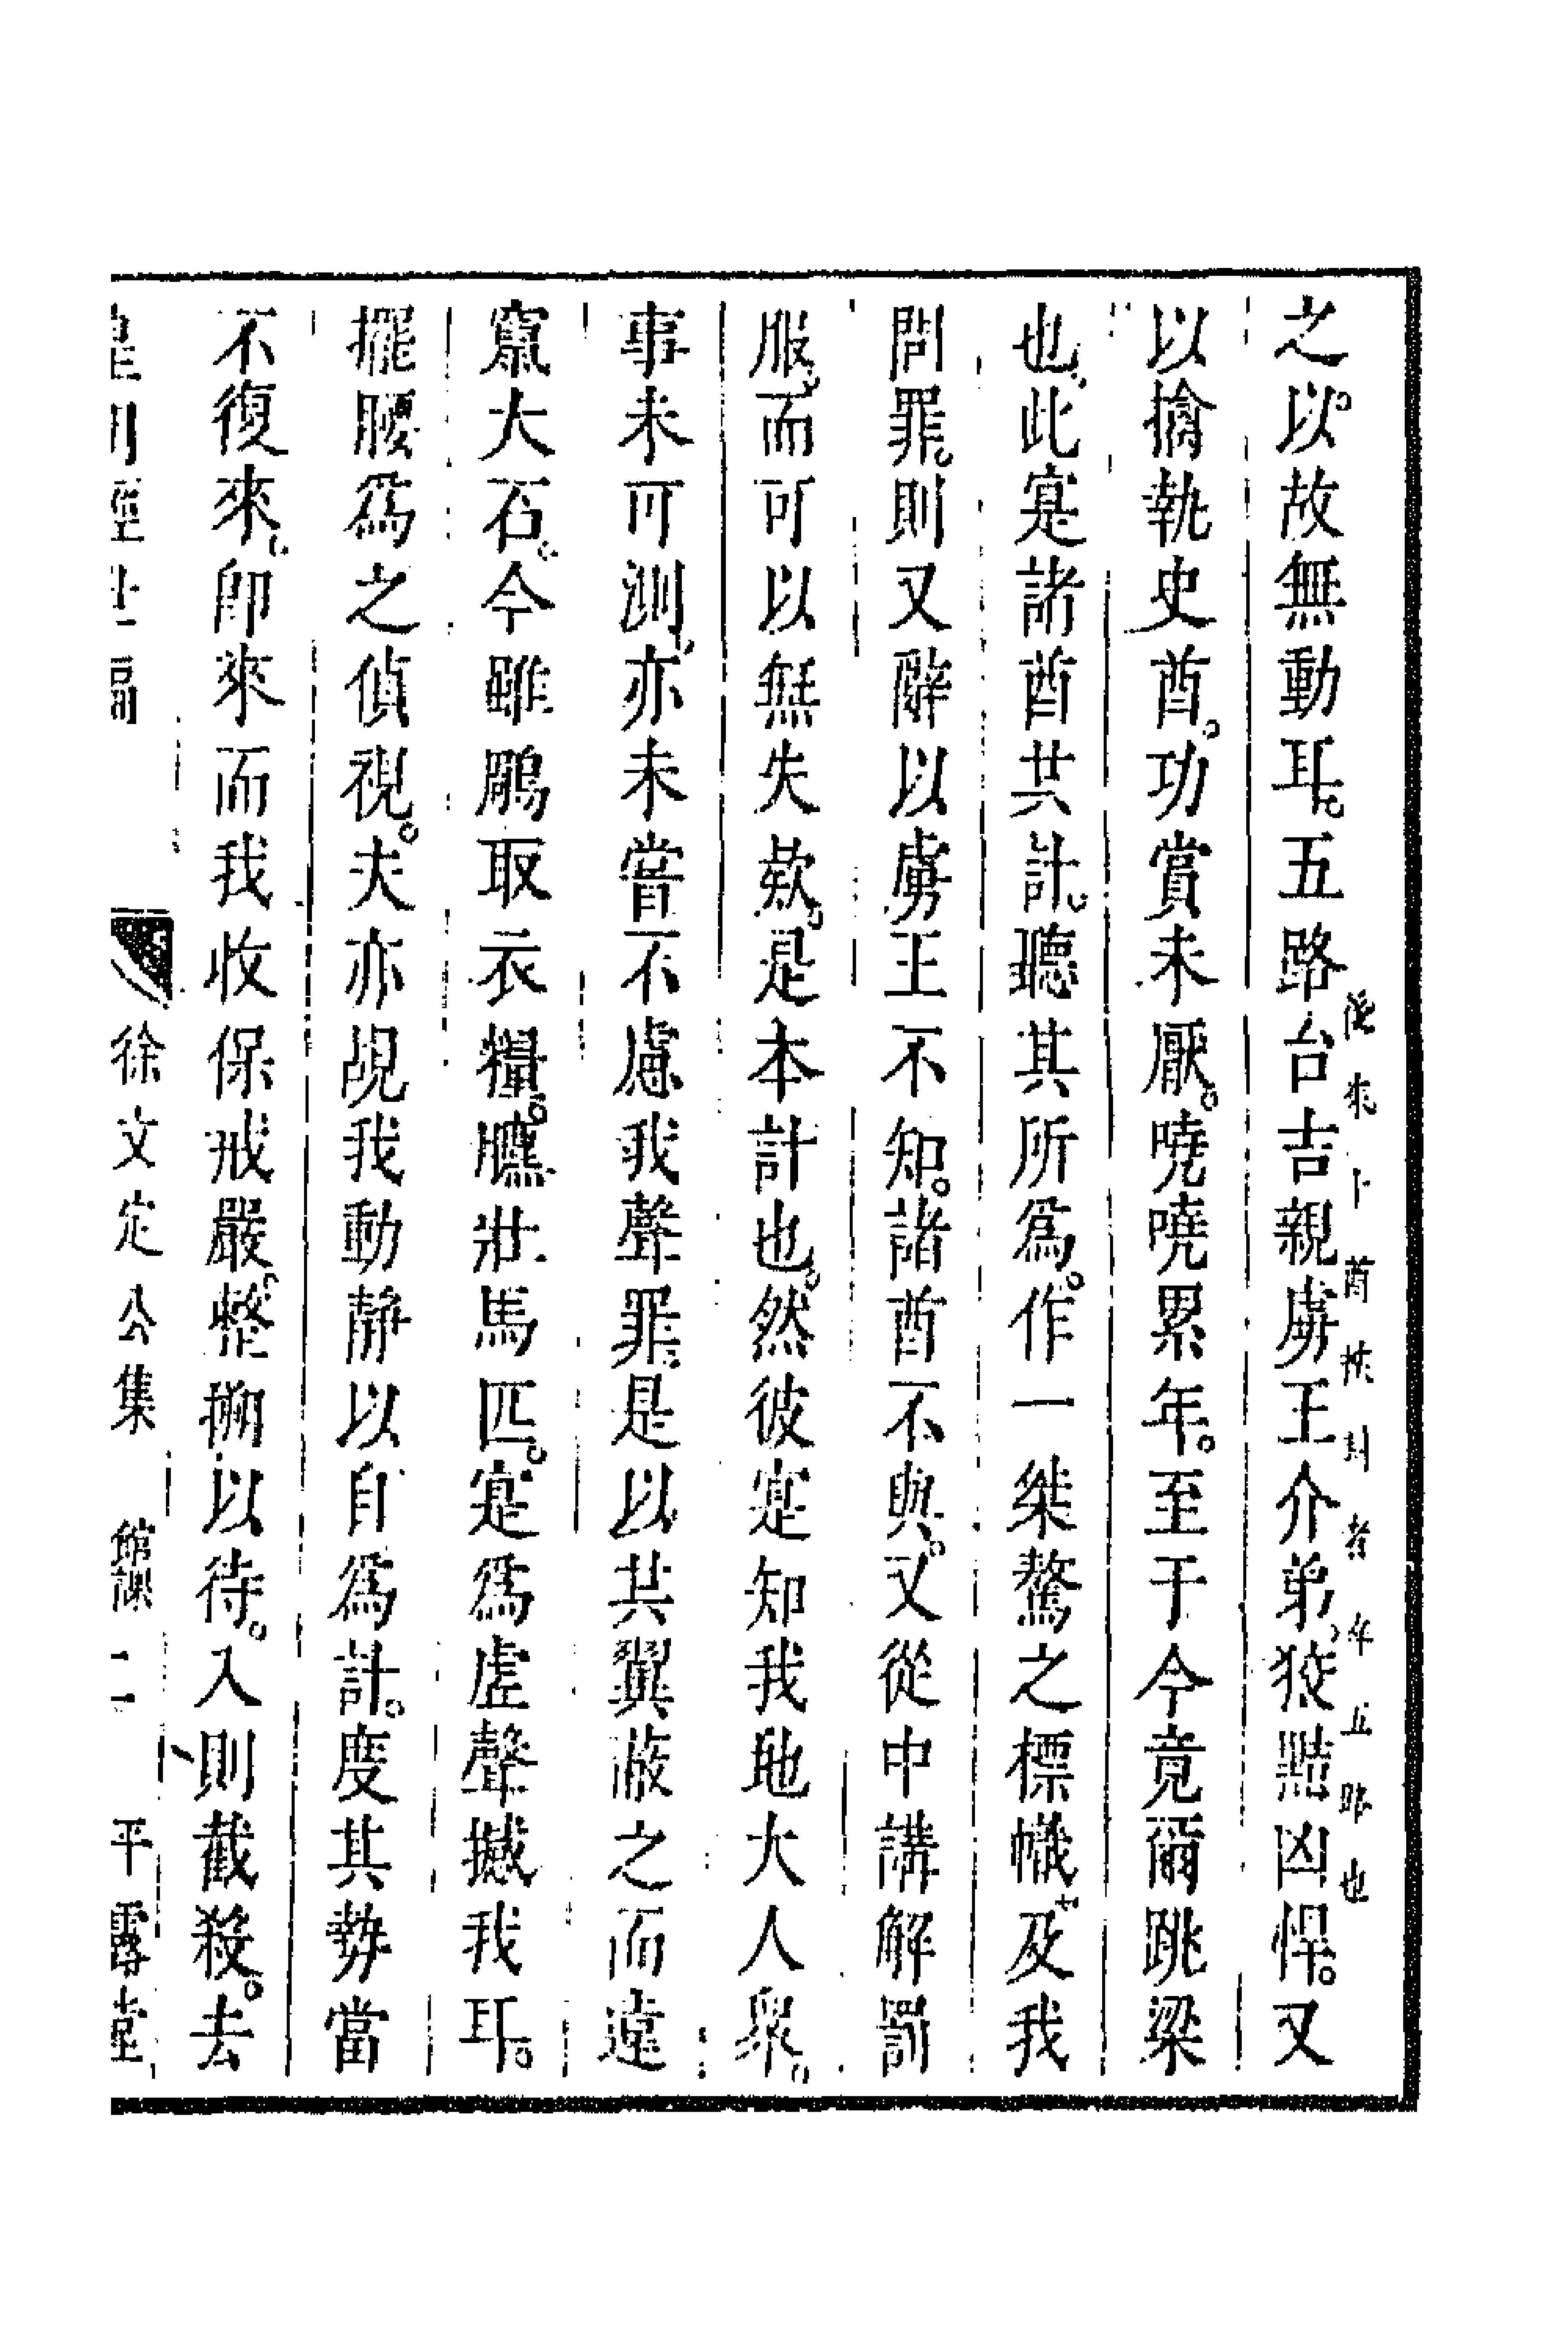 後來卜酋挾封者年五路也
之以故無動耳五路台吉親虜王介弟狡黠凶悍又
以擒執史酋功賞未厭嘵嘵累年至于今竟爾跳梁
也此寔諸酋共計聽其所爲作一桀驁之標幟及我
問罪則又辭以虜王不知諸酋不與又從中講解罰
服而可以無失款是本計也然彼寔知我地大人衆
事未可測亦未嘗不慮我聲罪是以共翼蔽之而遠
竄大石今雖鵰取衣糧臕壯馬匹寔爲虛聲撼我耳
擺腰爲之偵視夫亦覘我動靜以自爲計度其勢當
不復來卽來而我收保戒嚴整搠以待入則截殺去
皇明經世編 徐文定公集 館課 二 平露堂